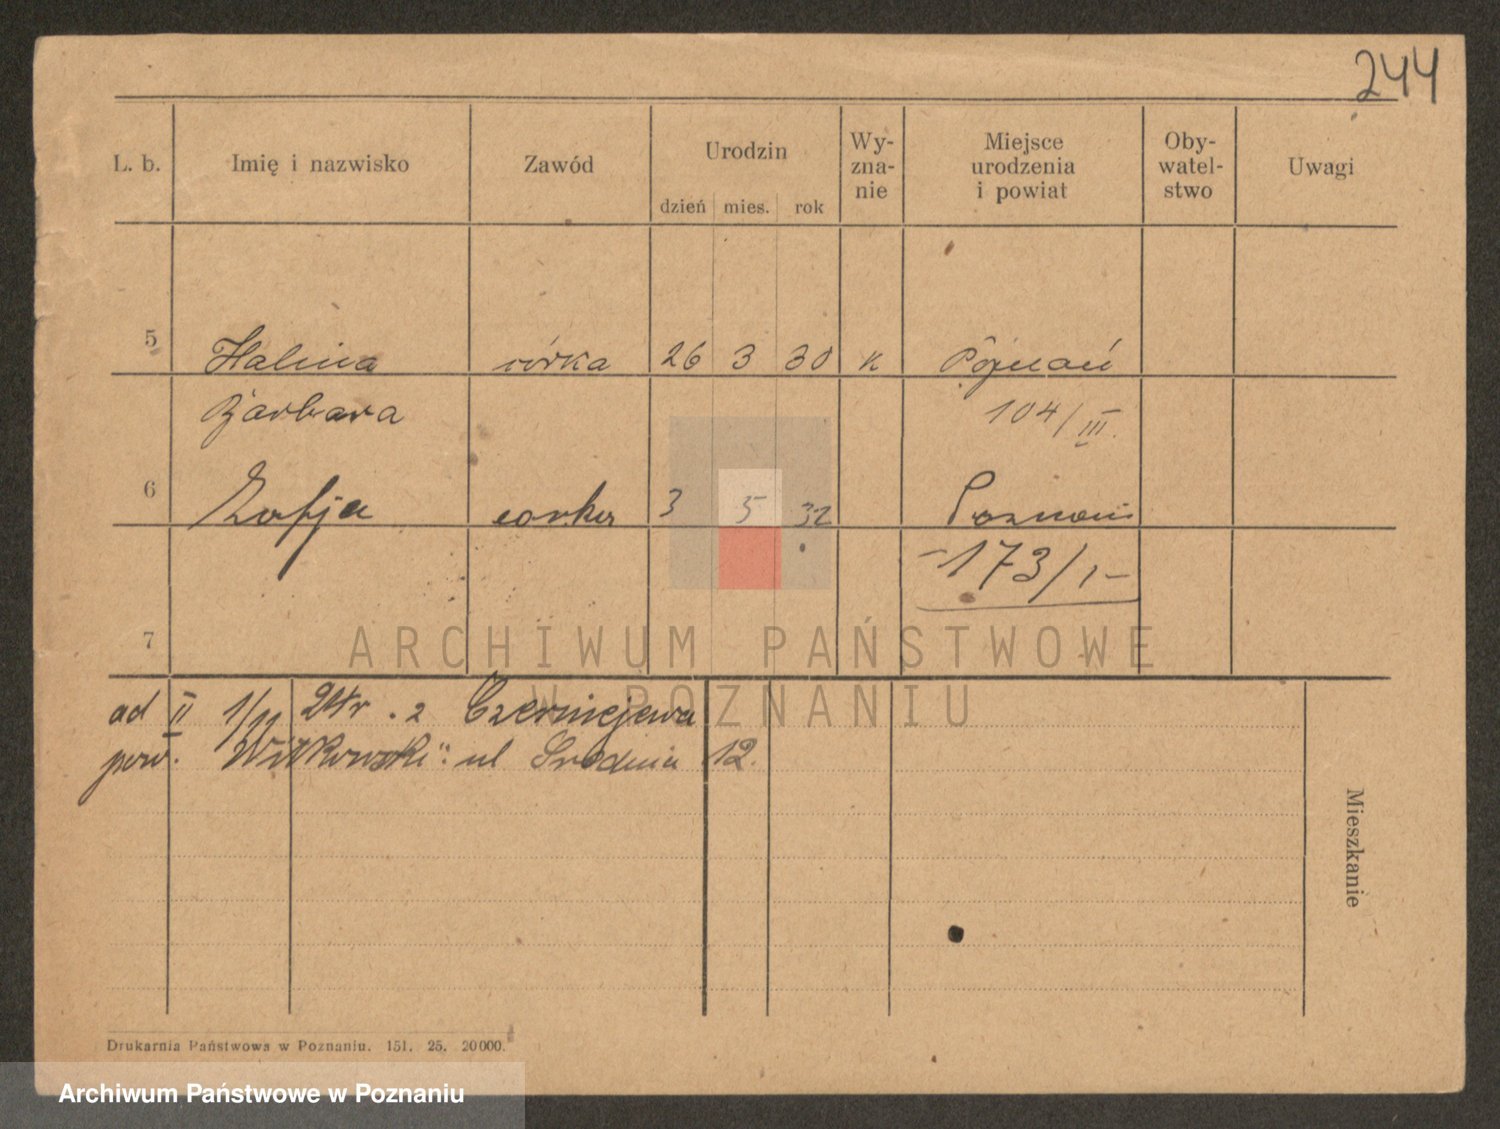 244
L. b. Imię i nazwisko Zawód Urodzin dzień mies. rok Wy-zna-nie Miejsce urodzenia i powiat Oby-watel-stwo Uwagi
5 Halina córka 26 3 30 k Poznań
Barbara 104/III.
6 Zofja corka 3 5 32 Poznań
-173/1-
7
ARCHIWUM PAŃSTWOWE
W POZNANIU
ad II 1/11 24 r. z Czerniejewa
pow. Witkowski ul Średnia 12.
Mieszkanie
Drukarnia Państwowa w Poznaniu. 151. 25. 20000.
Archiwum Państwowe w Poznaniu